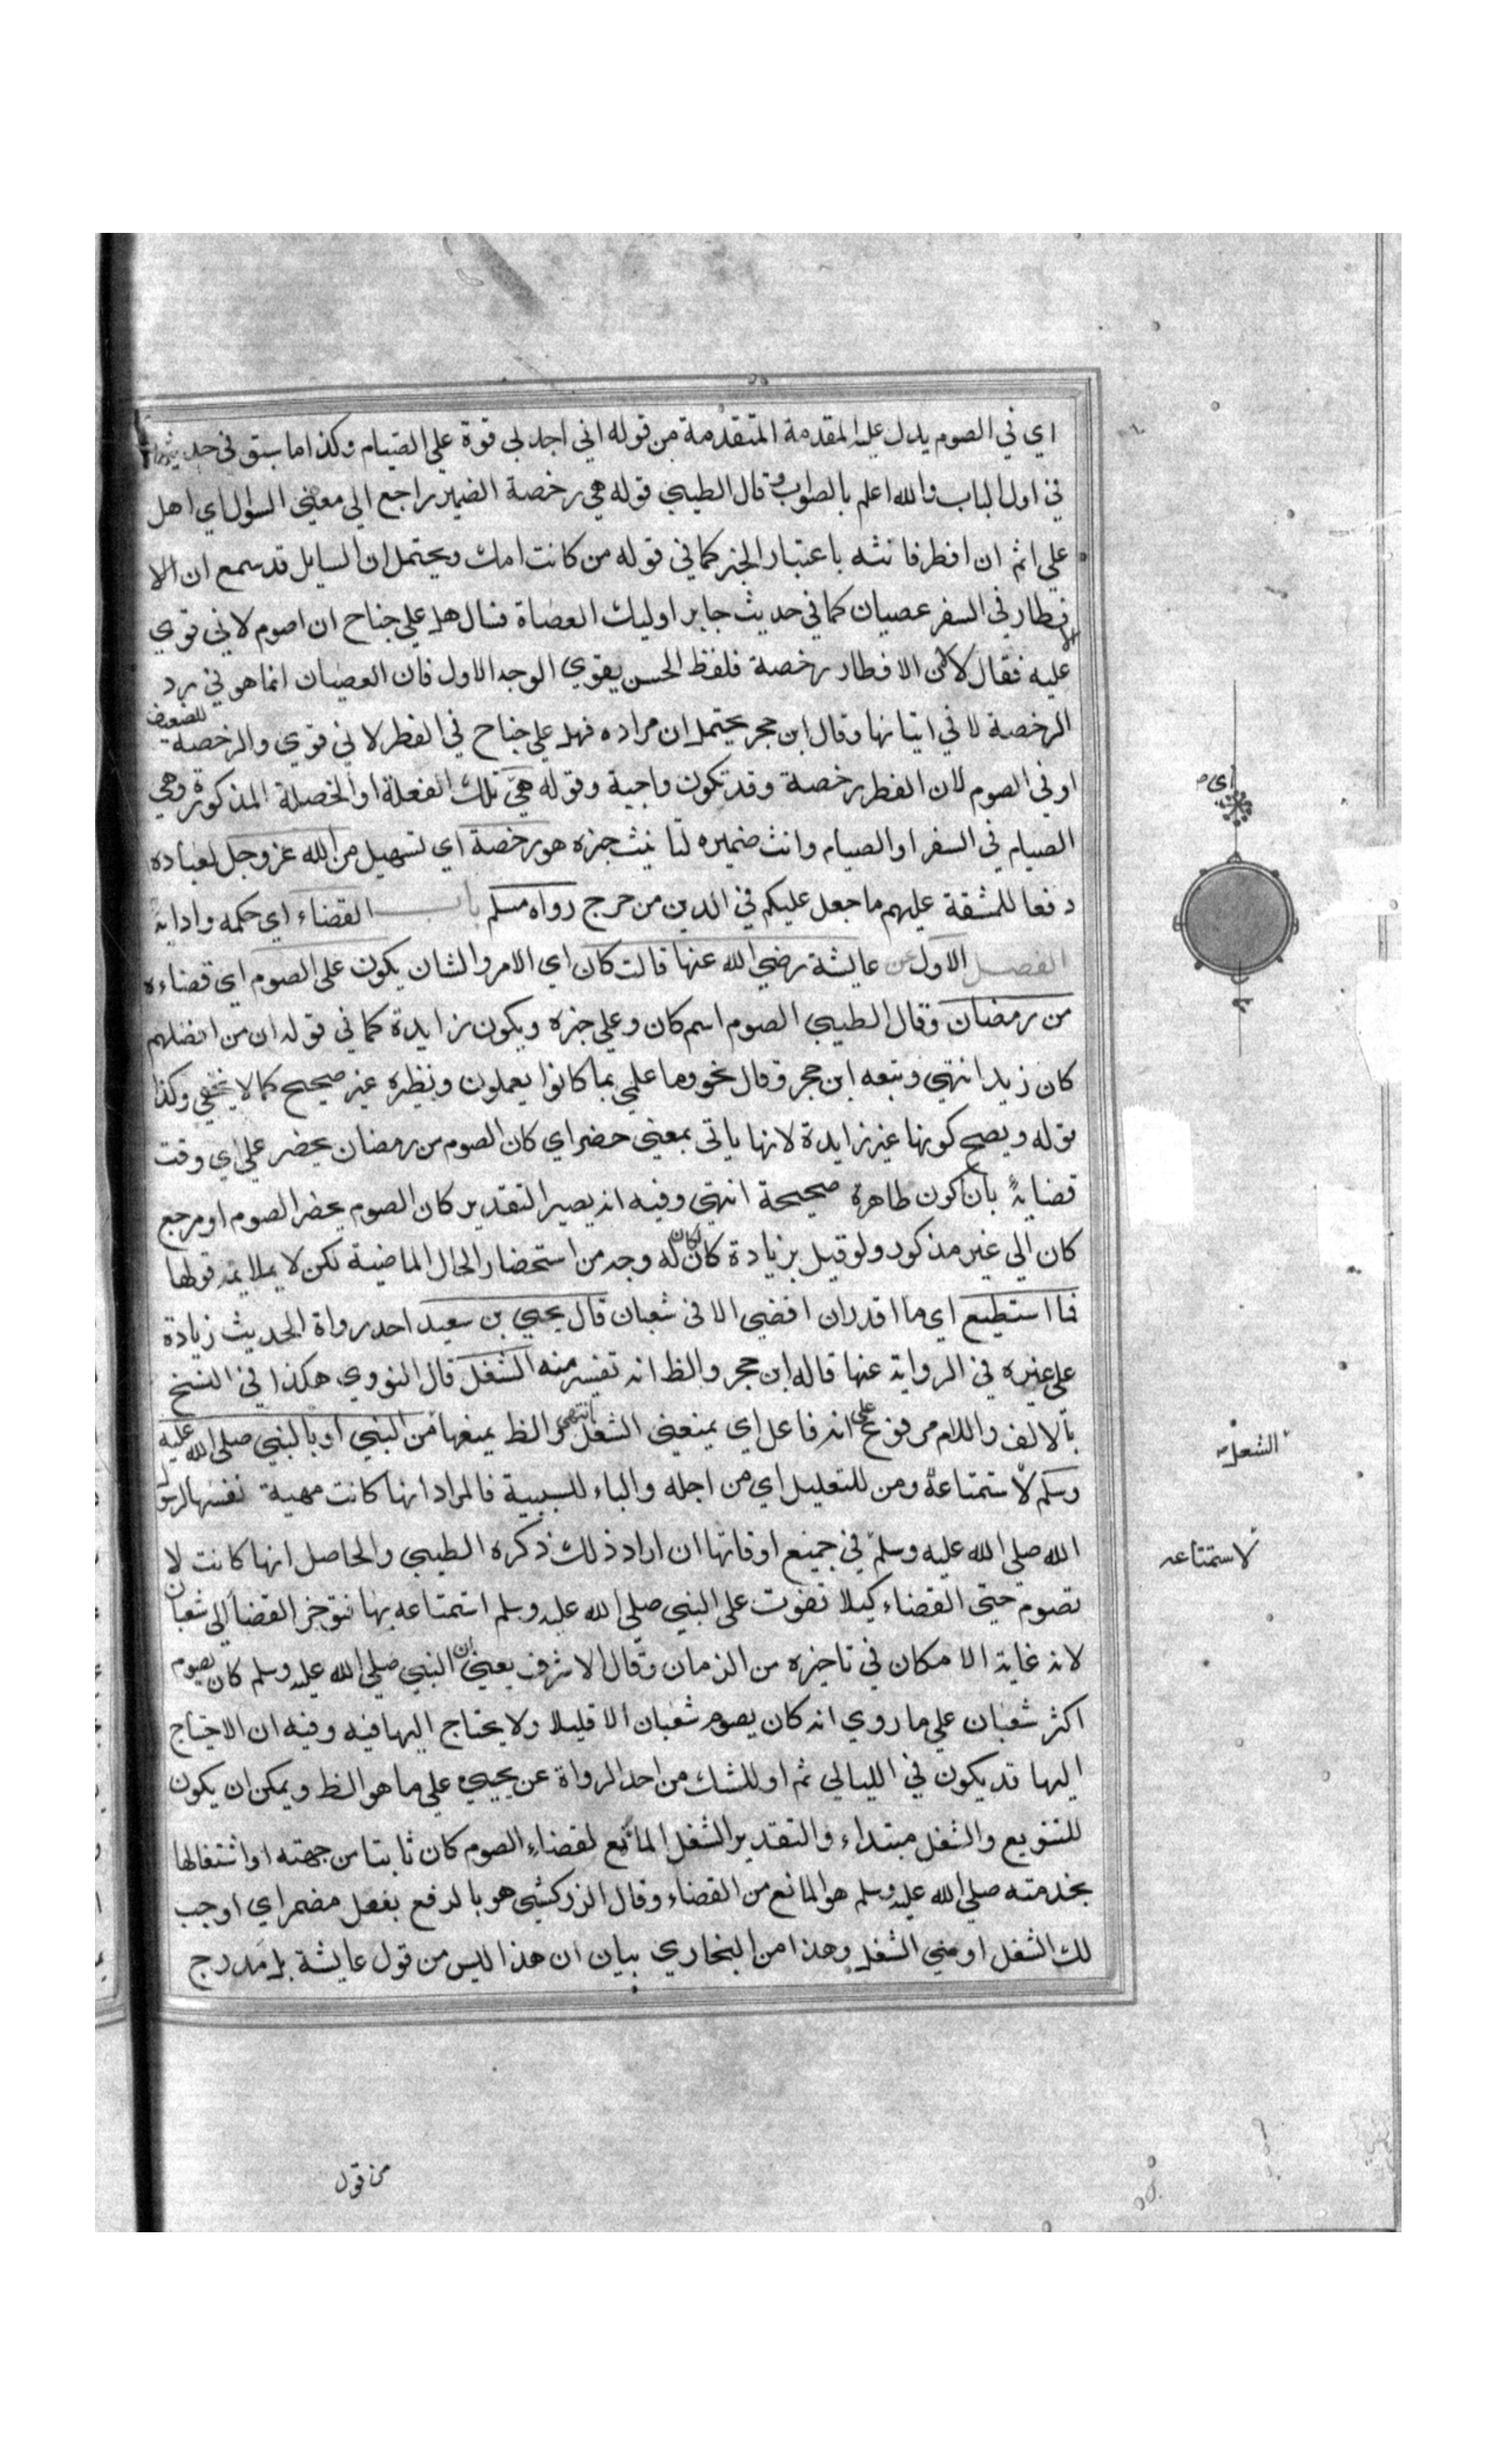 اي في الصوم يدل عليه المقدمة المتقدمة من قوله اني اجد لي قوة على الصيام وكذا ما سبق في حديثه
في اول الباب والله اعلم بالصواب وقال الطيبي قوله هي رخصة الضمير راجع الي معني السوال اي اهل
علي اثم ان افطر فانثه باعتبار الخبر كما في قوله من كانت امك ويحتمل ان السايل قد سمع ان الا
فطار في السفر عصيان كما في حديث جابر اوليك العصاة فسال هل علي جناح ان اصوم لاني قوي
عليه فقال لا لان الافطار رخصة فلفظ الحسن يقوي الوجه الاول فان العصيان انما هو في رد
الرخصة لا في اتيانها وقال ابن حجر يحتمل ان مراده فهل علي جناح في الفطر لاني قوي والرخصة للضعيف
او في الصوم لان الفطر رخصة وقد تكون واجبة وقوله هي تلك الفعلة او الخصلة المذكورة وهي
الصيام في السفر او الصيام وانث ضميره لتانيث خبره هو رخصة اي تسهيل من الله عز وجل لعباده
دفعا للمشقة عليهم ما جعل عليكم في الدين من حرج رواه مسلم باب القضاء اي حكمه وادايه
الفصل الاول عن عايشة رضي الله عنها قالت كان اي الامر والشان يكون على الصوم اي قضاءه
من رمضان وقال الطيبي الصوم اسم كان وعلي خبره ويكون زايدة كما في قوله ان من افضلهم
كان زيدا انتهي وتبعه ابن حجر وقال نحو وما علمي بما كانوا يعملون ونظيره غير صحيح كما لا يخفي وكذا
قوله ويصح كونها غير زايدة لانها ياتي بمعني حضر اي كان الصوم من رمضان يحضر علي اي وقت
قضايه بان اكون طاهرة صحيحة انتهي وفيه انه يصير التقدير كان الصوم يحضر الصوم او مرجع
كان الي غير مذكور ولو قيل بزيادة كان لكان له وجه من استحضار الحال الماضية لكن لا يلايمه قولها
فما استطيع اي ما اقدر ان اقضي الا في شعبان قال يحيي بن سعيد احد رواة الحديث زيادة
علي غيره في الرواية عنها قاله ابن حجر والظ انه تفسير منه الشغل قال النووي هكذا في النسخ
بالالف واللام مرفوع علي انه فاعل اي يمنعني الشغل انتهي والظ يمنعها من النبي او بالنبي صلى الله عليه
وسلم لاستمتاعه ومن للتعليل اي من اجله والباء للسببية فالمراد انها كانت مهيية نفسها لرسول
الله صلى الله عليه وسلم في جميع اوقاتها ان اراد ذلك ذكره الطيبي والحاصل انها كانت لا
تصوم حتي القضاء كيلا تفوت على النبي صلى الله عليه وسلم استمتاعه بها فتوخر القضا الى شعبان
لانه غاية الامكان في تاخيره من الزمان وقال الاشرف يعني ان النبي صلى الله عليه وسلم كان يصوم
اكثر شعبان علي ما روي انه كان يصوم شعبان الا قليلا ولا يحتاج اليها فيه وفيه ان الاحتياج
اليها قد يكون في الليالي ثم او للشك من احد الرواة عن يحيي علي ما هو الظ ويمكن ان يكون
للتنويع والشغل مبتداء والتقدير الشغل المانع لقضاء الصوم كان ثابتا من جهته او اشتغالها
بخدمته صلي الله عليه وسلم هو المانع من القضاء وقال الزركشي هو بالرفع بفعل مضمر اي اوجب
لك الشغل او مني الشغل وهذا من البخاري بيان ان هذا ليس من قول عايشة بل مدرج
اي
الشغل
لاستمتاعه
من قول